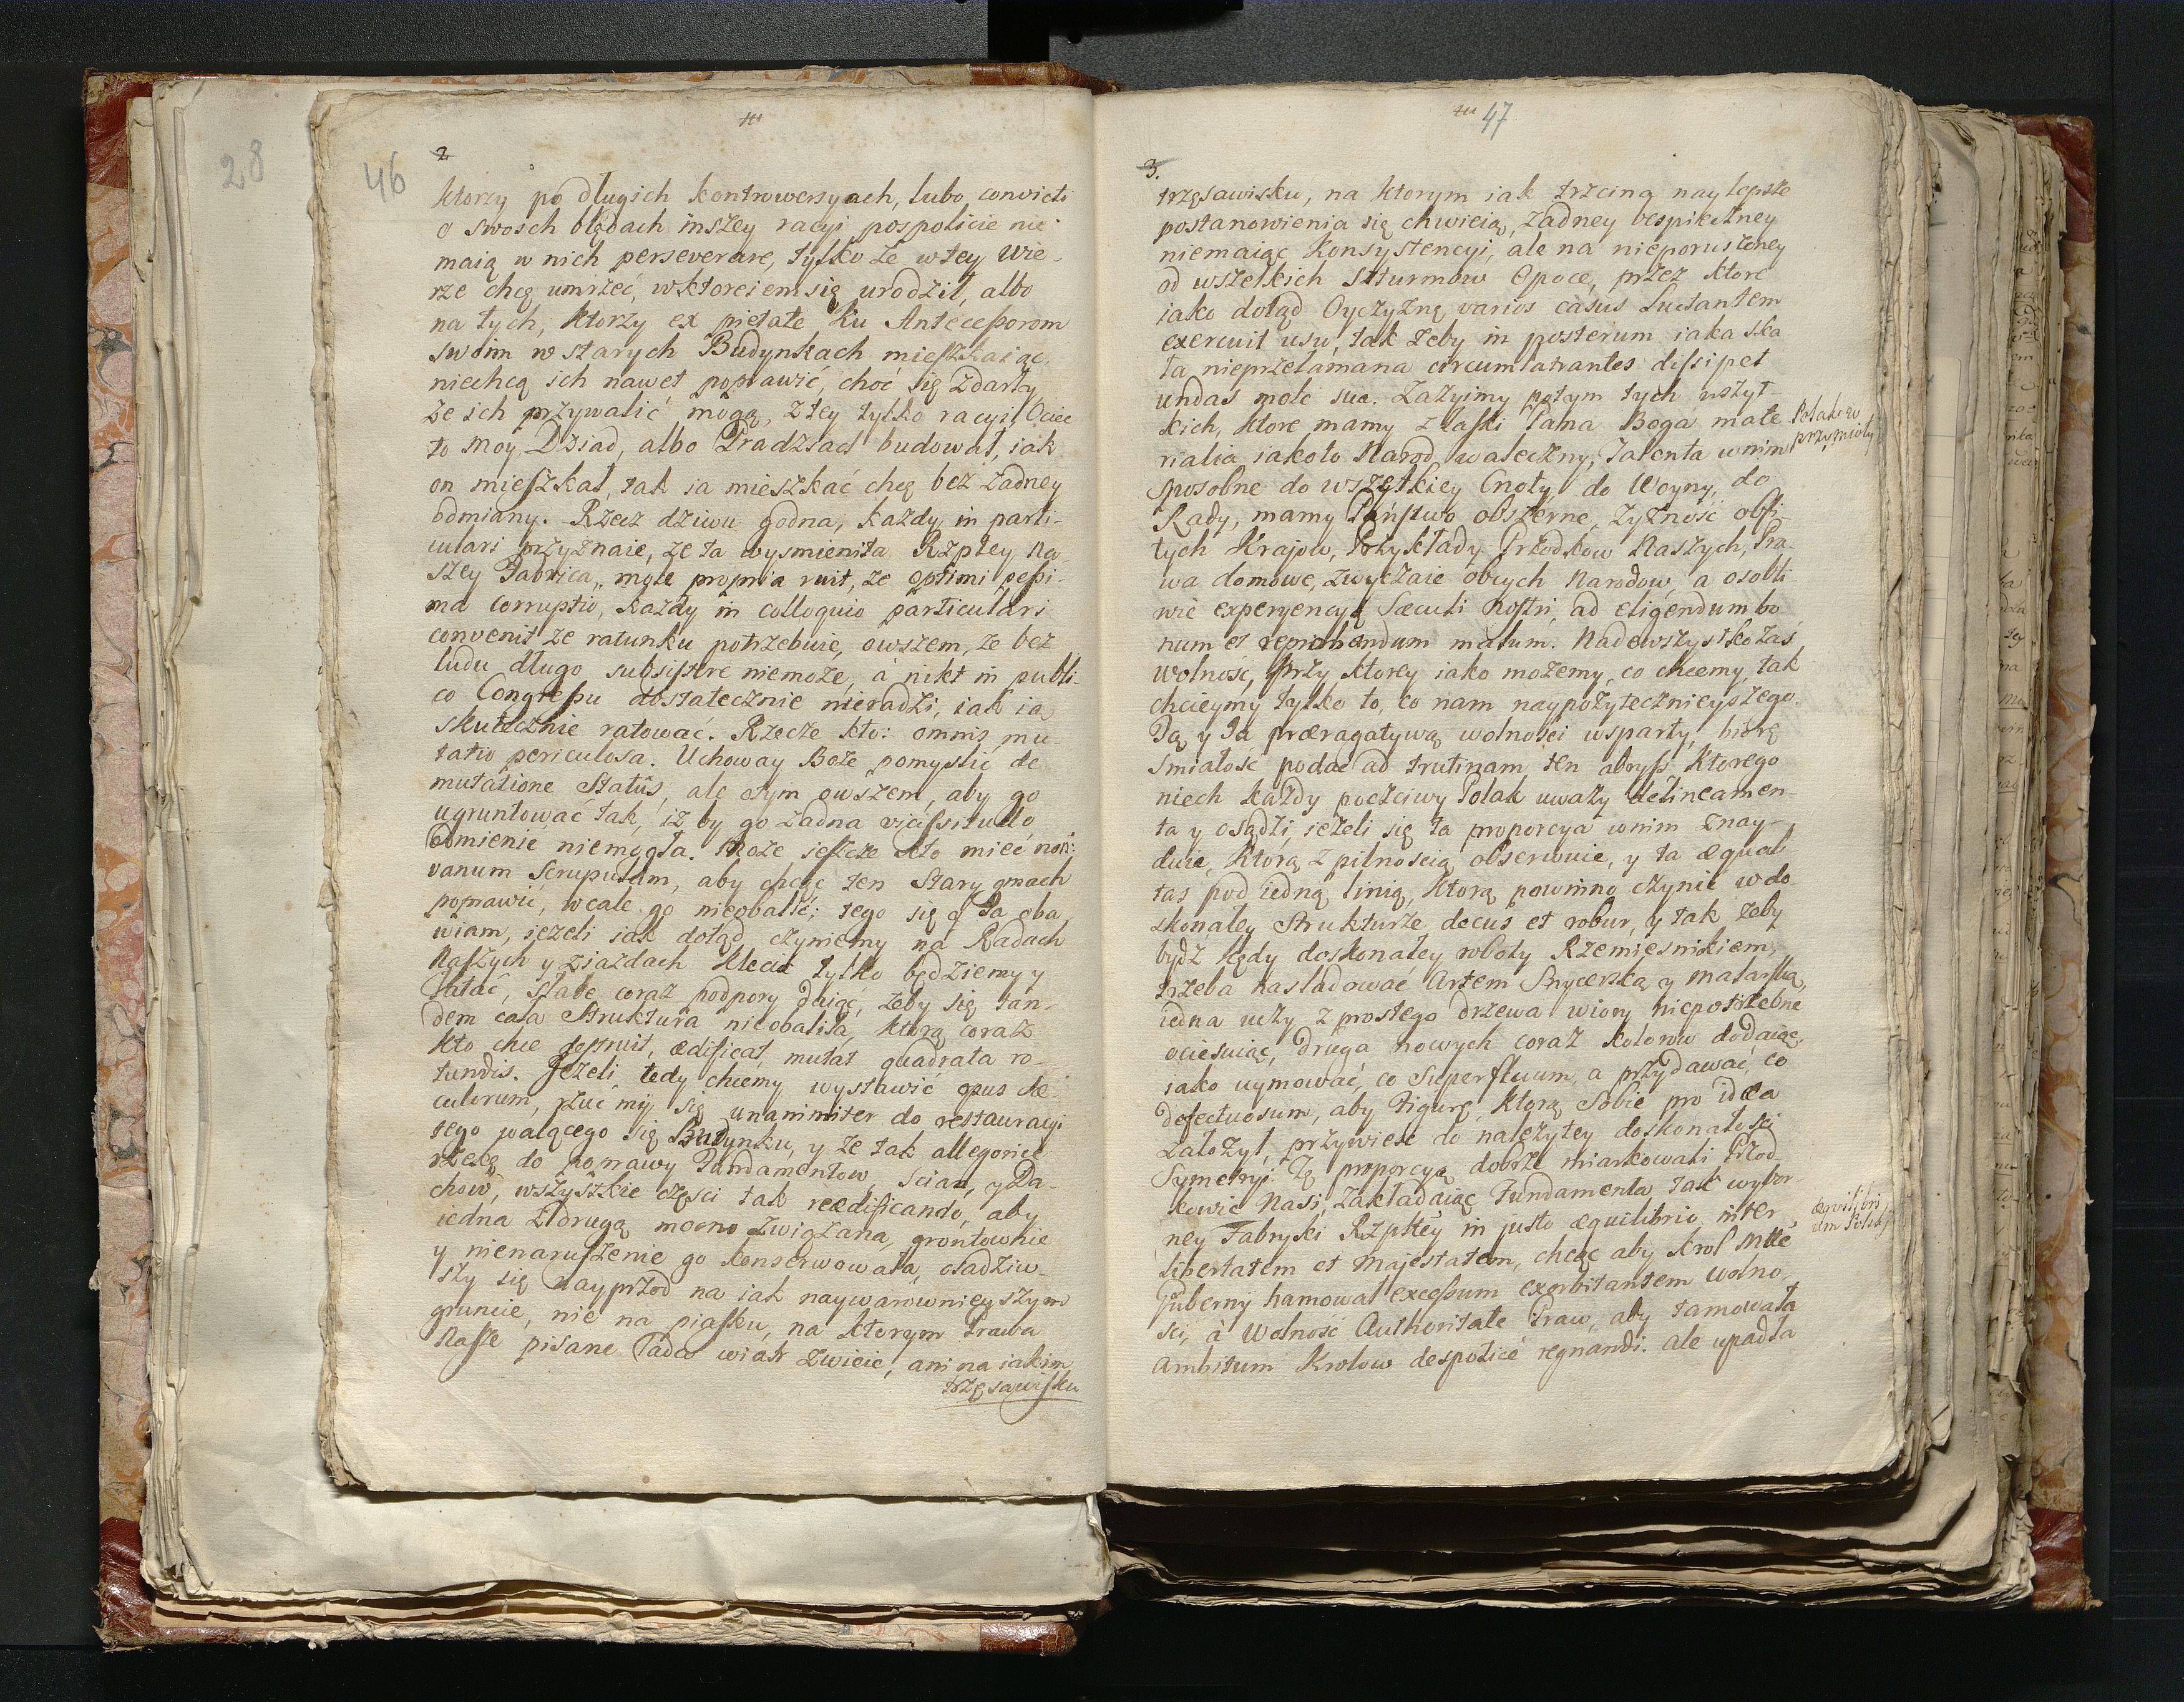 28
46
2
ktorzy po długich kontrowersyach, lubo convicti
o swoich błędach inszey racyi pospolicie nie
maią w nich perseverare, tylko że w tey wie-
rze chcę umrzeć, w ktoreiem się urodził, albo
na tych, ktorzy ex pietate ku Anteceßorom
swoim w starych Budynkach mieszkaiąc,
niechcą ich nawet poprawić, choć się zdarzy
że ich przywalić mogą, z tey tylko racyi, Ociec
to moy, Dziad, albo Pradziad budował, iak
on mieszkał, tak ia mieszkać chcę bez żadney
odmiany. Rzecz dziwu godna, każdy in parti-
culari przyznaie, że ta wysmienita Rzptey na-
szey Fabrica, mole propria ruit, że optimi peßi-
ma corruptio, każdy in colloquio particulari
convenit że ratunku potrzebuie, owszem, że bez
ludu długo subsistere niemoże, à nikt in publi-
co Congreßu dostatecznie nieradzi, iak ią
skutecznie ratować. Rzecze kto: omnis mu-
tatio periculosa. Uchoway Boże pomyslić de
mutatione Statûs, ale o tym owszem, aby go
ugruntować tak, iż by go żadna vicißitudo
odmienić niemogła. Może jeszcze kto mieć non
vanum Scrupulum, aby chcąc ten Stary gmach
poprawić, wcale go nieobalić; tego się y Ja oba-
wiam, ieżeli iak dotąd czyniemy na Radach
Naszych y ziazdach klecić tylko będziemy y
łatać, słabe coraz podpory daiąc, żeby się tan-
dem cała Struktura nieobaliła, ktorą coraz
kto chce destruit, ædificat, mutat quadrata ro-
tundis. Jeżeli tedy chcemy wystawić opus sæ-
culorum, rzućmy się unanimiter do restauracyi
tego walącego się Budynku, y że tak allegoricè
rzekę do poprawy Fundamentow, Scian, y Da-
chow, wszystkie częsci tak reædificando, aby
iedna z drugą mocno związana, gruntownie
y nienaruszenie go konserwowała, osadziw-
szy się nayprzod na iak naywarownieyszym
gruncie, nie na piasku, na ktorym Prawa
Nasze pisane lada wiatr zwieie, ani na iakim
trzęsawisku
47
3.
trzęsawisku, na ktorym iak trzcina naylepsze
postanowienia się chwieią, żadney bespieczney
niemaiąc konsystencyi, ale na nieporuszoney
od wszelkich Szturmow Opoce, przez ktore
iako dotąd Oyczyznę varios casus luctantem
exercuit usu, tak żeby in posterum iaka ska
ła nieprzełamana circumlatrantes dißipet
undas mole sua. Zażyimy potym tych wszyt-
kich, ktore mamy z łaski Pana Boga mate
rialia iakoto Narod waleczny, Talenta w nim
sposobne do wszytkiey Cnoty, do Woyny, do
Rady, mamy Państwo obszerne, żyzność obfi-
tych Kraiow, Przykłady Przodkow Naszych, Pra-
wa domowe, zwyczaie obcych Narodow, a osobli-
wie experyencyą Sæculi Nostri, ad eligendum bo
num et reprobandum malum. Nadewszystko zaś
Wolność, przy ktorey iako możemy, co chcemy, tak
chcieymy tylko to, co nam naypożytecznieyszego.
Tą y Ja prærogatywą wolności wsparty, biorę
Smiałość podać ad trutinam ten abryß, ktorego
niech każdy poczciwy Polak uważy delineamen-
ta y osądzi, ieżeli się ta proporcya w nim znay-
duie, ktorą z pilnością obserwuie, y ta æquali-
tas pod iedną linią, ktorą powinno czynić w do-
skonałey Strukturze decus et robur, y tak żeby
bydź kędy doskonałey roboty Rzemiesnikiem,
trzeba nasladować Artem Snycerską y malarską,
iedna uczy z prostego drzewa wiory niepotrzebne
ociesuiąc, druga nowych coraz kolorow dodaiąc,
iako uymować, co Superfluum, a przydawać, co
defectuosum, aby Figurę, ktorą Sobie pro idæa
założył, przywiesć do należytey doskonałości
Symetryi. Tę proporcyą dobrze miarkowali Przod-
kowie Nasi, zakładaiąc Fundamenta tak wybor-
ney Fabryki Rzpltey in justo æquilibrio inter
libertatem et Majestatem, chcąc aby Krol Mole
Gubernij hamował exceßum exorbitantem wolno-
sci, à Wolność Authoritate Praw, aby tamowała
ambitum Krolow despoticè regnandi. ale upadła
Polakow
przymioty
æquilibri
um Polskj